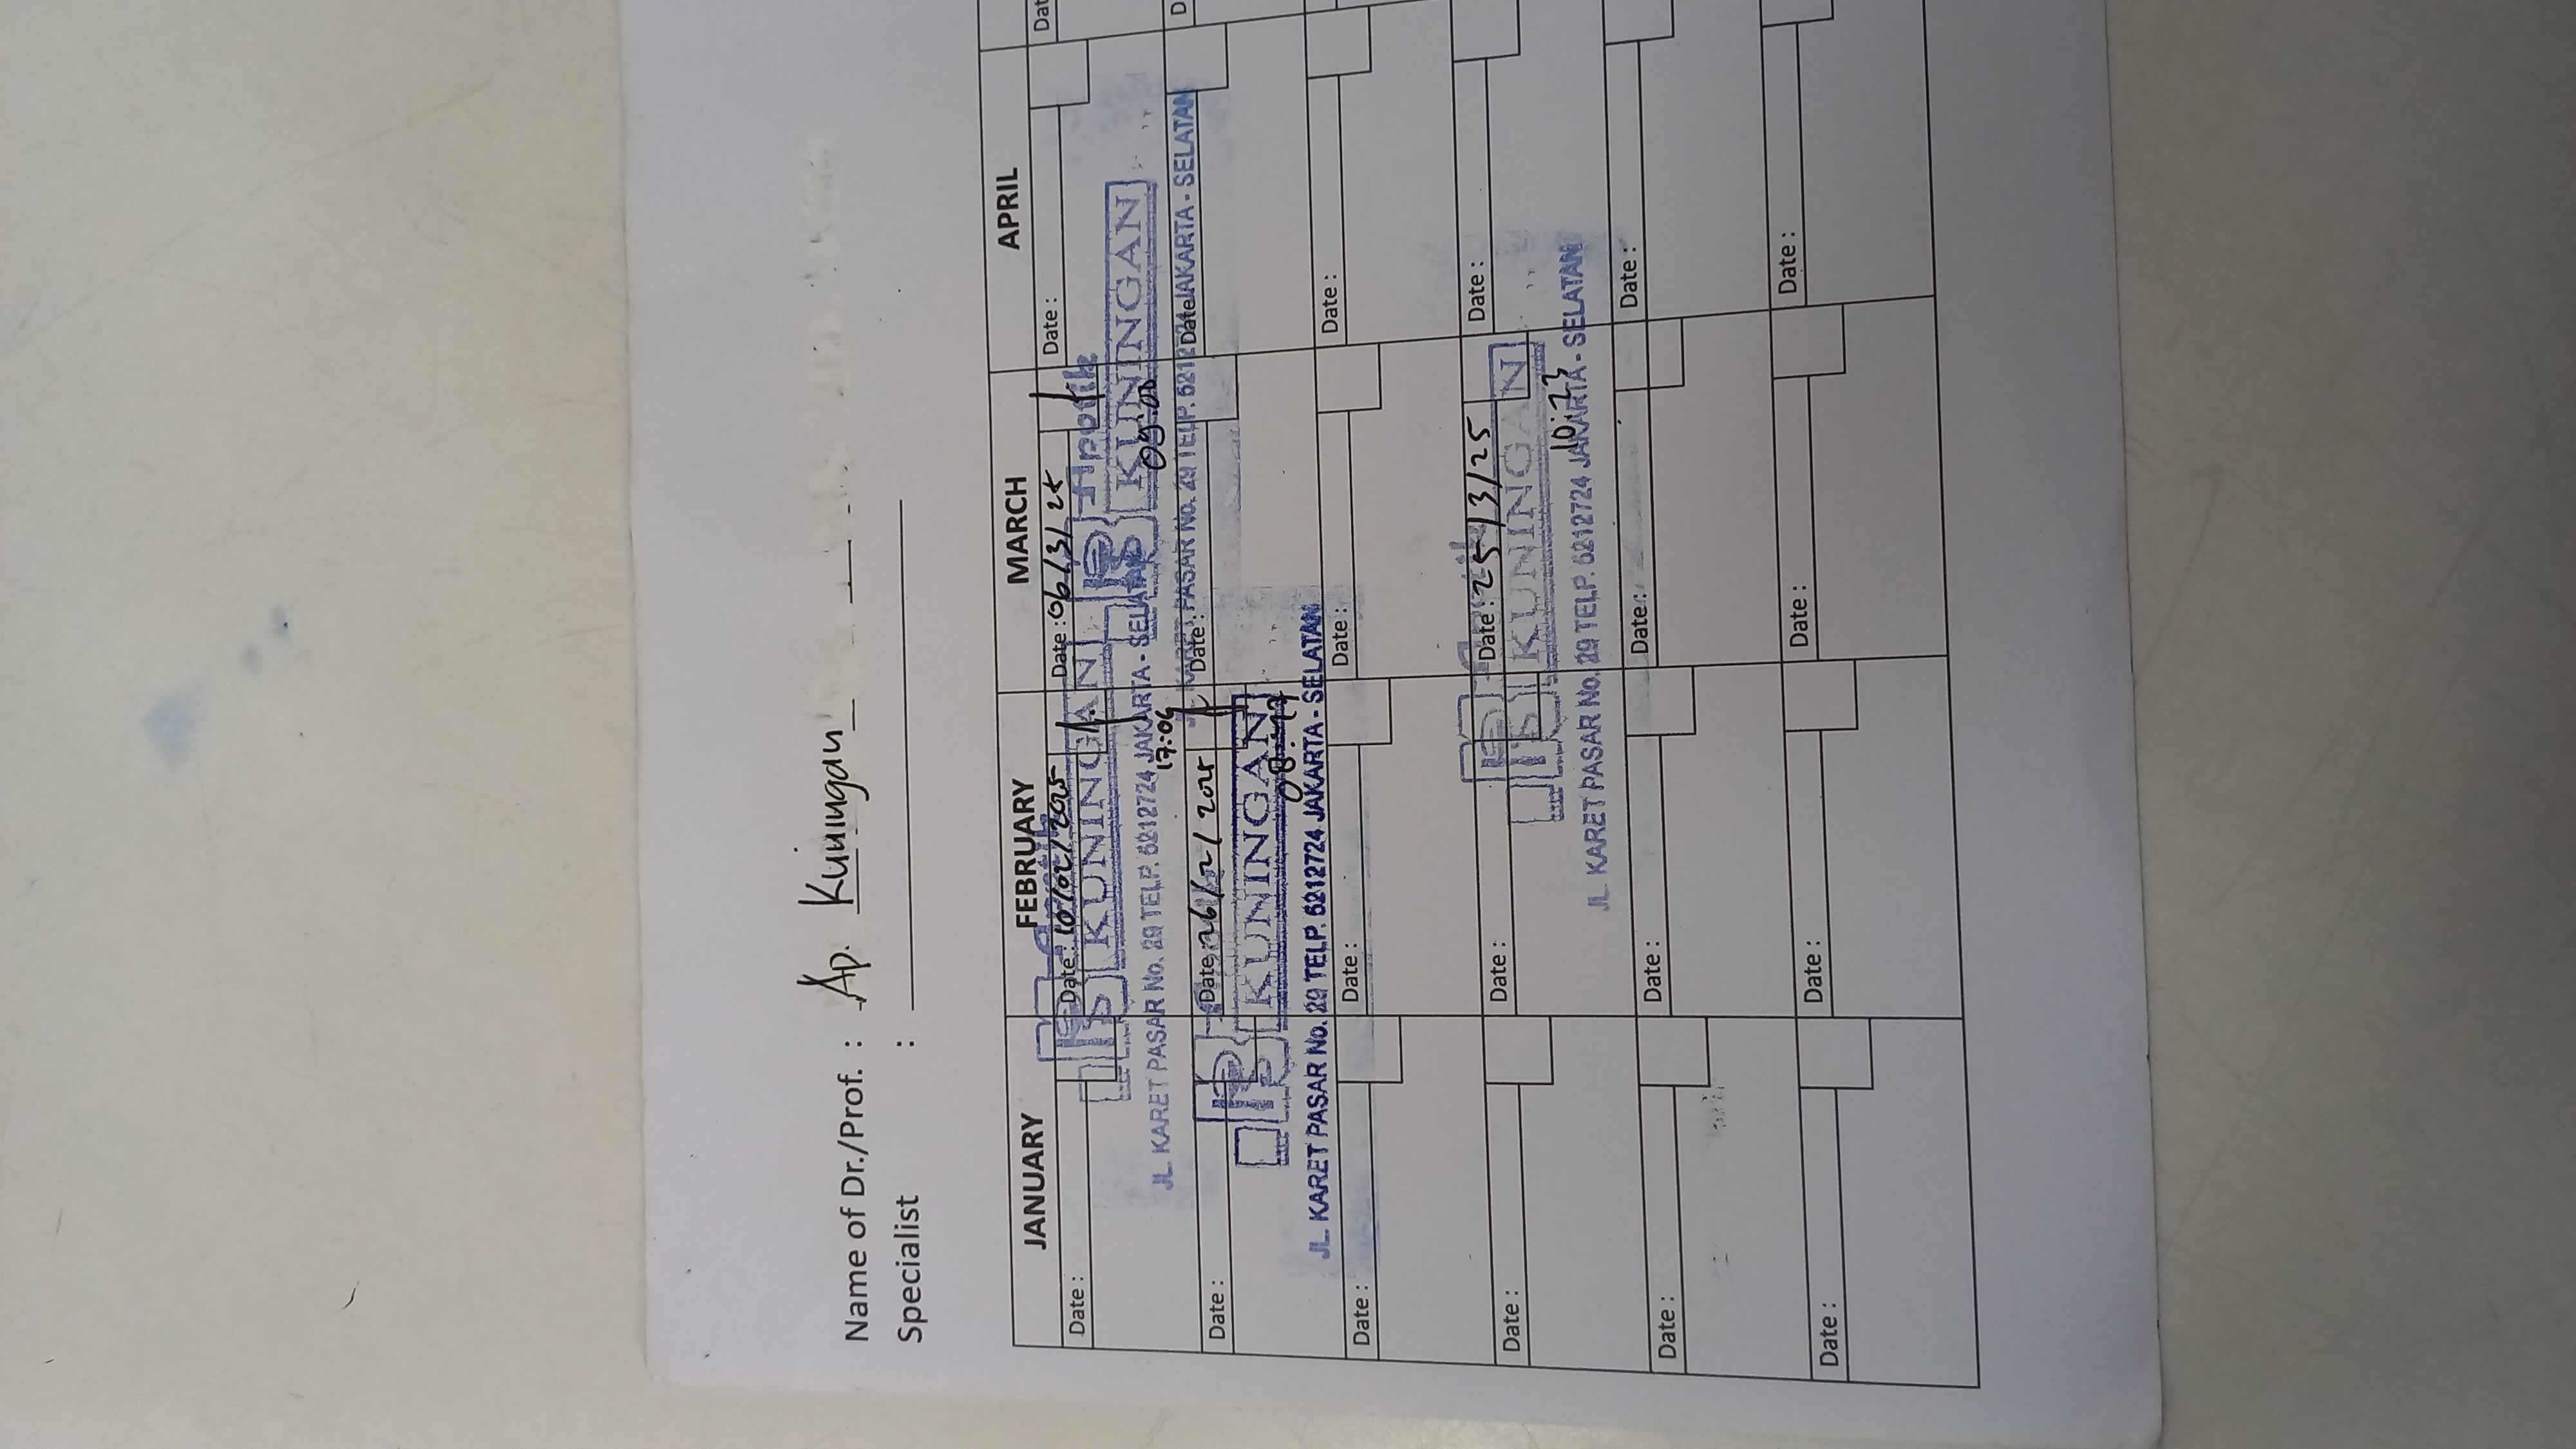 Name of Dr./Prof. : Ap. Kuningan
Specialist :
JANUARY FEBRUARY MARCH APRIL
Date : Date : 10/02/2025 Date : 06/3/25 Date : Dat
Apotik
KUNINGAN KUNINGAN
17:04 09:00
JL. KARET PASAR No. 29 TELP. 5212724 JAKARTA - SELATAN
KARET PASAR No. 29 TELP. 5212724 JAKARTA - SELATAN
Date : Date : 26/02/2025 Date : Date D
KUNINGAN
JL. KARET PASAR No. 29 TELP. 5212724 JAKARTA - SELATAN
Date : Date : Date : Date :
Date : Date : Date : 25/3/25 Date :
KUNINGAN
10:23
JL. KARET PASAR No. 29 TELP. 5212724 JAKARTA - SELATAN
Date : Date : Date : Date :
Date : Date : Date : Date :